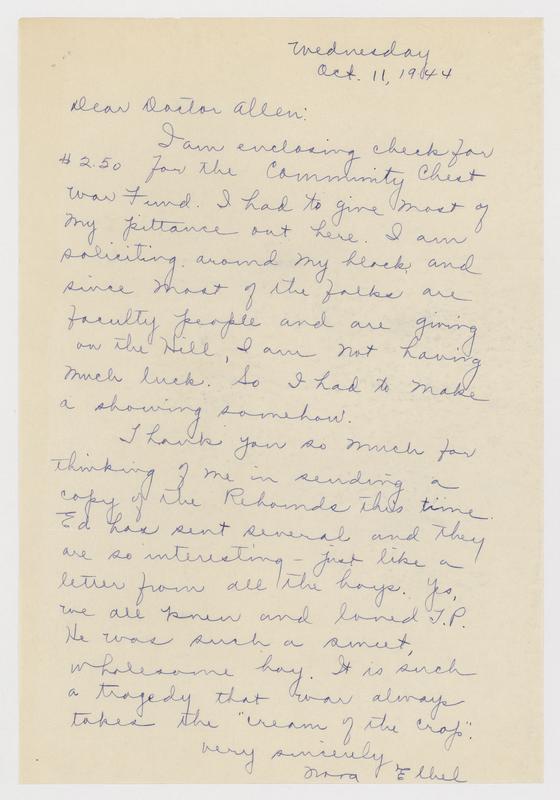 Wednesday
Oct. 11, 1944
Dear Doctor Allen:
I am enclosing check for
$2.50 for the Community Chest
War Fund. I had to give most of
my pittance out here. I am
soliciting around my block, and
since most of the folks are
faculty people and are giving
on the Hill, I am not having
much luck. So I had to make
a showing somehow.
Thank you so much for
thinking of me in sending a
copy of the Rebounds this time.
Ed has sent several and they
are so interesting - just like a
letter from all the boys. Yes,
we all knew and loved T.P.
He was such a sweet,
wholesome boy. It is such
a tragedy that war always
takes the "cream of the crop".
Very sincerely
Nora Elbel